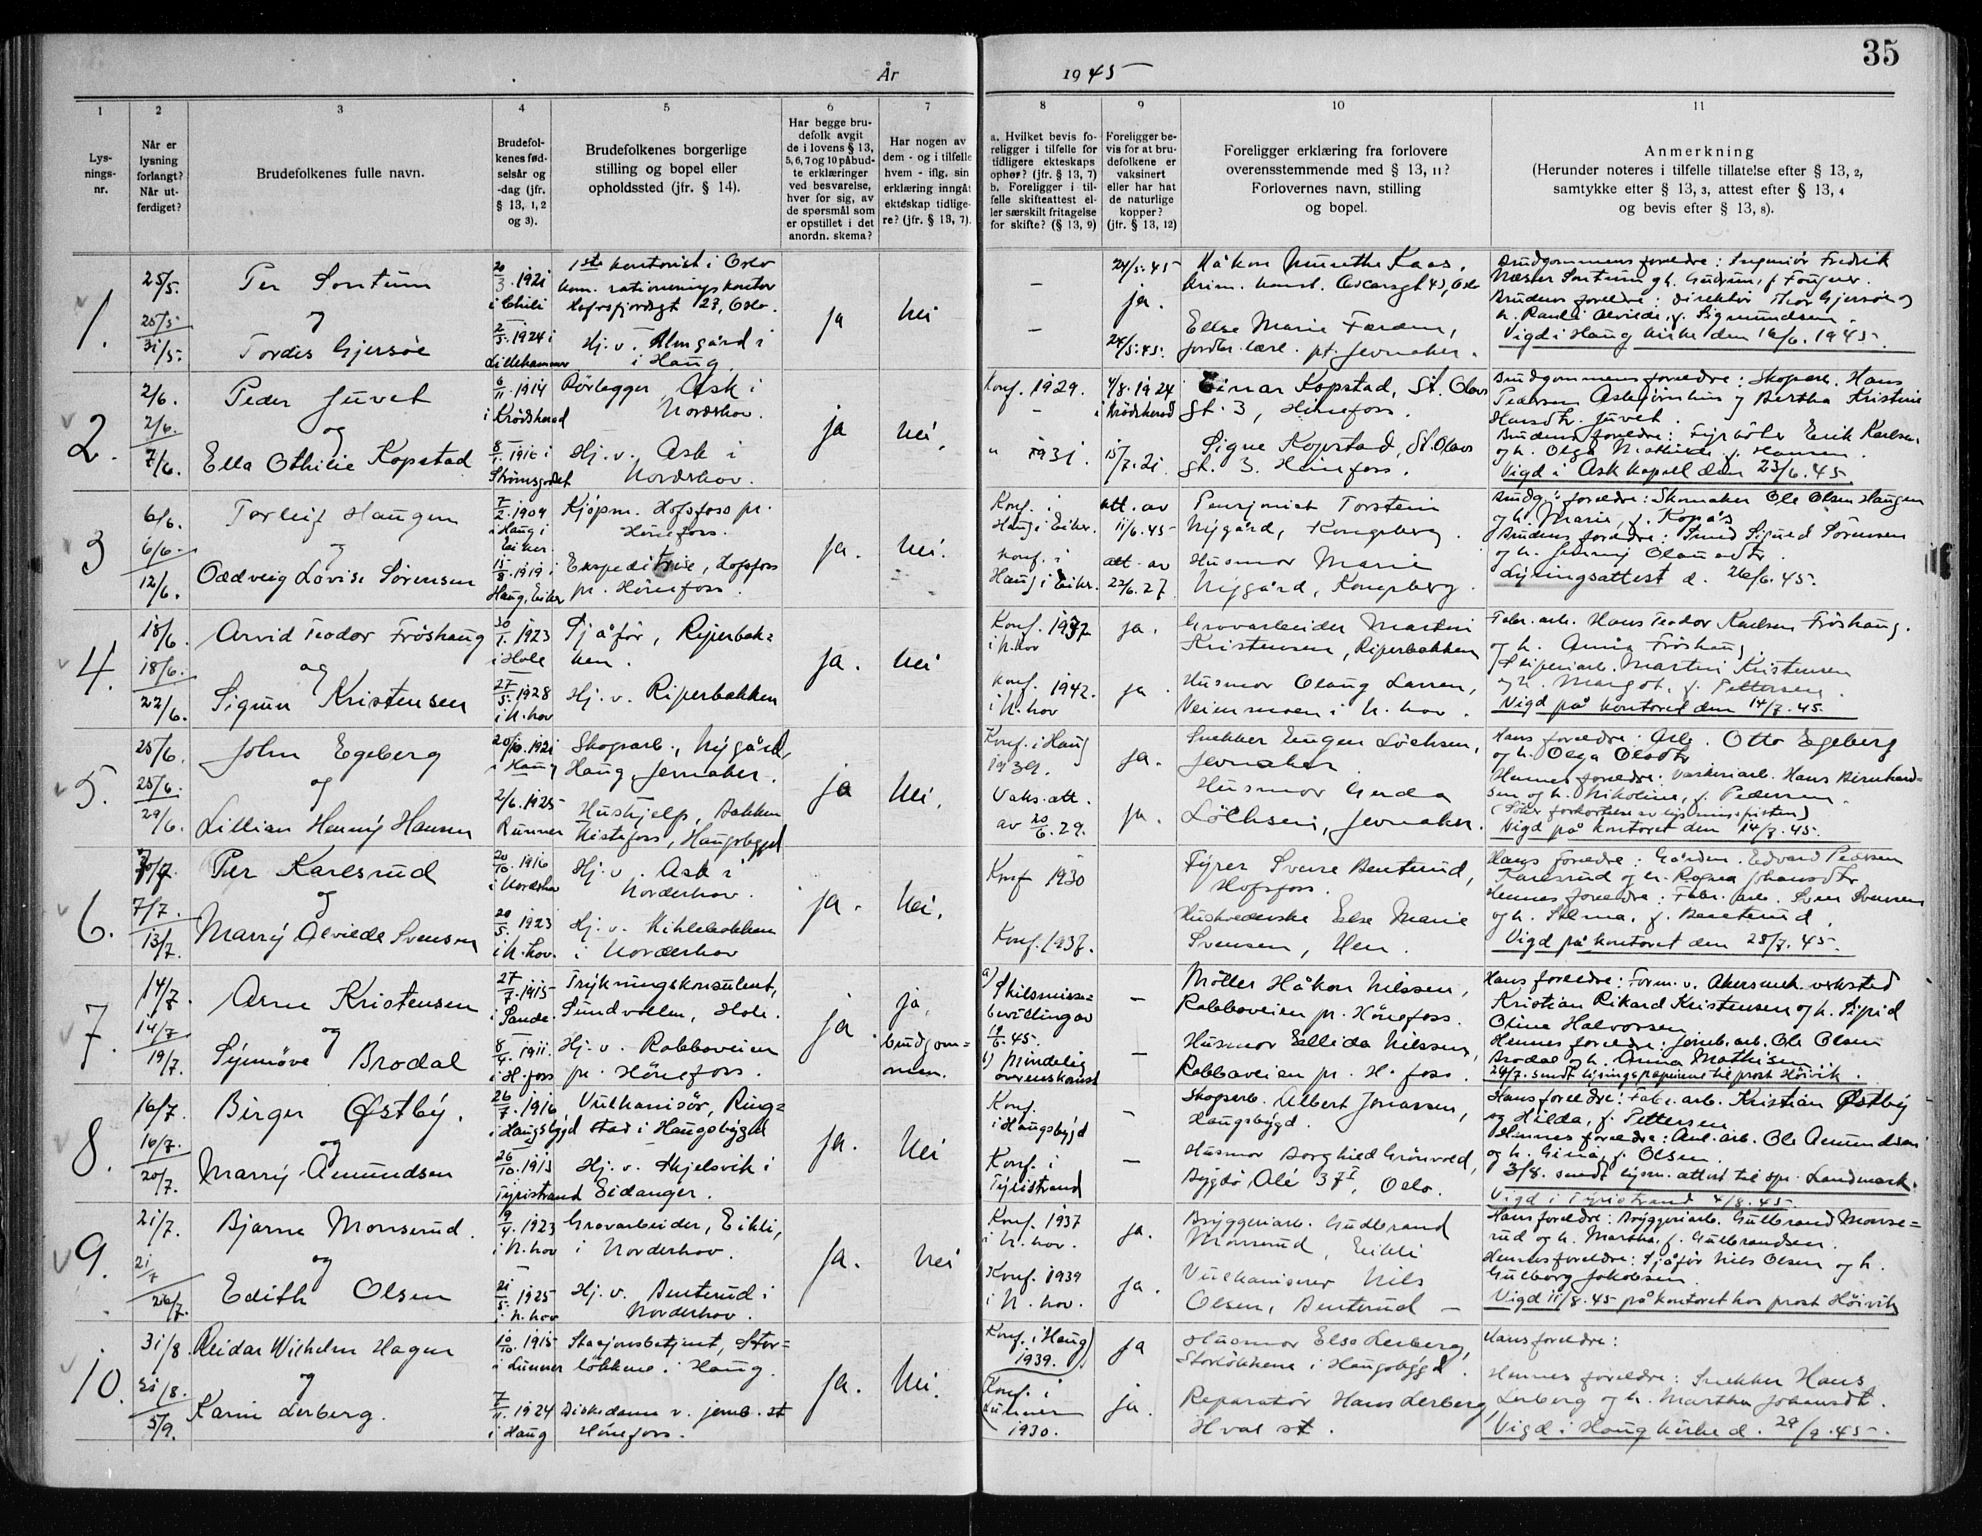 35
År 1945
1 2 3 4 5 6 7 8 9 10 11
Lys-
nings-
nr.
Når er
lysning
forlangt?
Når ut-
ferdiget?
Brudefolkenes fulle navn.
Brudefol-
kenes fød-
selsår og
-dag (jfr.
§ 13, 1, 2
og 3).
Brudefolkenes borgerlige
stilling og bopel eller
opholdssted (jfr. § 14).
Har begge bru-
defolk avgit
de i lovens § 13,
5, 6, 7 og 10 påbud-
te erklæringer
ved besvarelse,
hver for sig, av
de spørsmål som
er opstillet i det
anordn. skema?
Har nogen av
dem - og i tilfelle
hvem - iflg. sin
erklæring inngått
ekteskap tidlige-
re? (jfr. § 13, 7).
a. Hvilket bevis fo-
religger i tilfelle for
tidligere ekteskaps
ophør? (jfr. § 13, 7)
b. Foreligger i til-
felle skifteattest el-
ler særskilt fritagelse
for skifte? (§ 13, 9)
Foreligger be-
vis for at bru-
defolkene er
vaksinert
eller har hat
de naturlige
kopper?
(jfr. § 13, 12)
Foreligger erklæring fra forlovere
overensstemmende med § 13, 11?
Forlovernes navn, stilling
og bopel.
Anmerkning
(Herunder noteres i tilfelle tillatelse efter § 13, 2,
samtykke efter § 13, 3, attest efter § 13, 4
og bevis efter § 13, 8).
1.
25/5.
25/5
31/5.
Per Sontum
og
Tordis Gjersøe
20/3. 1921
i Chili
2/5. 1924 i
Lillehammer
1ste kontorist i Oslo
kom. rationeringskontor
Hofosfjordsgt 27, Oslo.
Hj. v. Almgård i
i Haug
ja
nei
–
–
24/5.45
ja.
24/5.45.
Håkon Munthe Kaas,
krim. konst. Oscarsgt 43, Oslo
Else Marie Farden,
jordbr. lærl. pt. Jevnaker.
Brudgommens foreldre: Ingeniør Fredrik
Næster Sontum og h. Gudrun, f. Fougner.
Brudens foreldre: direktør Thor Gjersøe og
h. Randi Alvilde, f. Sigmundsen
Vigd i Haug kirke den 16/6. 1945.
2.
2/6.
2/6.
7/6.
Peder Juvet
og
Ella Othilie Kopstad
6/11. 1914
i Krødsherad
8/1. 1916 i
Strømsgodset
Rørlegger Ask i
Norderhov.
Hj. v. Ask i
Norderhov.
ja
nei.
Konf. 1929.
–
" 1931.
4/8. 1924
i Krødsherad
15/7. 21.
Einar Kopstad, St. Olavs
gt. 3, Hønefoss.
Signe Kopstad, St. Olavs
gt. 3. Hønefoss.
Brudgommens foreldre: Skogarb. Hans
Pedersen Askbjørnhus og Bertha Kristine
Hansdtr. Juvet.
Brudens foreldre: Fyrbøter Erik Karlsen
og h. Olga Mathilde f. Hansen.
Vigd i Ask kapell den 23/6.45.
3
6/6.
6/6.
12/6.
Torleif Haugen
og
Oddveig Lovise Sørensen
7/2. 1904
i Haug i
Eiker.
15/8. 1919 i
Haug, Eiker
Kjøpm. Hofsfoss pr.
Hønefoss.
Ekspeditrise, Hofsfoss
pr. Hønefoss.
ja.
nei.
Konf. i
Haug i Eiker.
Konf. i
Haug i Eiker.
att. av
11/6.45
att. av
22/6. 27
Pensjonist Torstein
Nygård, Kongsberg.
Husmor Marie
Nygård, Kongsberg.
Brudg's foreldre: Skomaker Ole Olsen Haugen
og h. Marie, f. Kopås
Brudens foreldre: Smed Sigurd Sørensen
og h. Jenny Olausdtr.
Lysningsattest d. 26/6.45.
4.
18/6.
18/6.
22/6.
Arvid Teodor Frøshaug
og
Sigrun Kristensen
30/1. 1923
i Hole
27/5. 1928
i N.hov
Sjåfør, Riperbak-
ken.
Hj. v. Riperbakken
ja.
nei
Konf. 1937
i N.hov
Konf. 1942.
i N.hov
ja.
ja.
Grovarbeider Martin
Kristensen, Riperbakken
Husmor Olaug Larsen,
Veienmoen i N. hov.
Fabr. arb. Hans Teodor Karlsen Frøshaug.
og h. Anna Frøshaug.
Sliperiarb. Martin Kristensen
og h. Margot, f. Pettersen.
Vigd på kontoret den 14/7.45.
5.
25/6.
25/6.
29/6.
John Egeberg
og
Lillian Henny Hansen
20/10. 1921
i Haug
2/6. 1925
Lunner
Skogsarb., Nygård,
Haug, Jevnaker.
Hushjelp, Bakken
Kistefoss, Haugsbygd
ja
nei.
Konf. i Haug
1939.
Vaks. att.
av 20/6. 29.
ja.
ja.
Snekker Eugen Løchsen,
Jevnaker
Husmor Gerda
Løchsen, Jevnaker.
Hans foreldre: Arb. Otto Egeberg
og h. Olga Olsdtr
Hennes foreldre: Væskeriarb. Hans Bernhard-
sen og h. Nikoline, f. Pedersen.
(Søker forkortelse av lysningsfristen)
Vigd på kontoret den 14/7.45.
6.
7/7.
13/7.
Per Karlsrud
og
Marry Alvilde Svensen
20/10. 1916
i Norderhov
20/5. 1923
i N. hov.
Hj. v. Ask i
Norderhov.
Hj. v. Kihlebakken
i Norderhov
ja.
nei.
Konf 1930
Konf. 1937.
Fyrer Sverre Bentrud,
Hofsfoss.
Huskvederske Else Marie
Svensen, Hen.
Hans foreldre: Gårdbr. Edvard Pedersen
Karlsrud og h. Ragna Johansdtr
Hennes foreldre: Fabr. arb. Sven Svensen
og h. Selma, f. Bentrud
Vigd på kontoret den 28/7.45.
7.
14/7.
14/7
19/7.
Arne Kristensen
og
Synnøve Brodal
27/7. 1915
i Sande.
8/4. 1911.
i H.foss
Trykningskonsulent,
Sundvolln, Hole.
Hj. v. Rabbaveien
pr. Hønefoss.
ja.
ja,
brudgom-
men.
a)
Skilsmisse-
bevilling av
b) Mindelig
overenskomst
–
–
Møller Håkon Nilssen,
Rabbaveien pr. Hønefoss.
Husmor Ellida Nilssen,
Rabbaveien pr. H. foss.
Hans foreldre: Form. v. Akers mek. verksted
Kristian Rikard Kristensen og h. Sigrid
Oline Halvorsen
Hennes foreldre: Jernb. arb. Ole Olsen
Brodal og h. Anna Mathisen
24/7. sendt lysningspapirene til prost Høivik.
8.
16/7.
16/7.
20/7.
Birger Østby.
og
Marry Amundsen
26/7. 1916,
i Haugsbygd
26/10. 1915
Tyristrand
Vulkanisør, Ring-
stad i Haugsbygd
Hj. v. Skjelsvik i
Eidanger.
ja.
nei
Konf.
i Haugsbygd
Konf. i
Tyristrand
–
–
Skogarb. Albert Jonassen,
Haugsbygd.
Husmor Borghild Grønvold,
Bygdø Alé 37 I, Oslo.
Hans foreldre: Fabr. arb. Kristian Østby
og Hilda, f. Pettersen
Hennes foreldre: Anl. arb. Ole Amundsen
og h. Gina, f. Olsen.
3/8. sendt lysn. attest til spr. Landmark.
Vigd i Tyristrand 4/8.45.
9.
21/7.
21/7
26/7.
Bjarne Monserud.
og
Edith Olsen
19/4. 1923
i N.hov
21/5. 1925
i N.hov
Grovarbeider, Eikli,
i Norderhov.
Hj. v. Benterud i
Norderhov.
ja.
nei
Konf. 1937
i N. hov.
Konf. 1939
i N. hov.
ja.
ja.
Bryggeriarb. Gudbrand
Monserud, Eikli
Vulkaniserer Nils
Olsen, Benterud –
Hans foreldre: Bryggeriarb. Gulbrand Monse-
rud og h. Martha, f. Gulbrandsen.
Hennes foreldre: Sjåfør Nils Olsen og h.
Gulborg Jakobsen.
Vigd 11/8.45 på kontoret hos prost Høivik
10.
31/8.
31/8.
5/9.
Reidar Wilhelm Hagen
og
Karin Lerberg.
10/10. 1915
i Lunner
7/11. 1924
i Haug
Stasjonsbetjent, Stor-
løkkene i Haug.
Diskedame v. jernb. st
Hønefoss.
ja.
nei.
Konf. i Haug
1939.
Konf. i
Lunner
1930.
ja
ja.
Husmor Else Lerberg,
Storløkkene i Haugsbygd.
Reparatør Hans Lerberg
Hval st.
Hans foreldre:
Hennes foreldre: Snekker Hans
Lerberg og h. Martha Johansdt.
Vigd i Haug kirke d. 29/9.45.